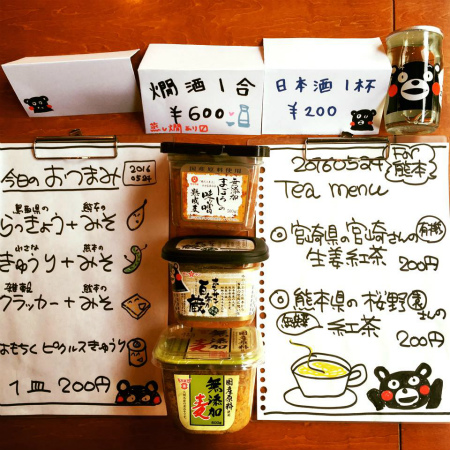 燗酒1合
¥600
蒸し燗あり〼
日本酒1杯
¥200
今日のおつまみ
2016
05.24
らっきょう+みそ
熊本の
小さな
熊本の
きゅうり+みそ
雑穀
熊本の
クラッカー+みそ
おもちくピクルスきゅうり
1皿 200円
国産原料使用
無添加
まぼろしの
味噌
熟成麦
百蔵
国産原料
無添加
麦
20160524
For
熊本
Tea menu
宮崎県の宮崎さんの
有機
生姜紅茶
200円
熊本県の桜野園
さんの
無農薬
紅茶
200円